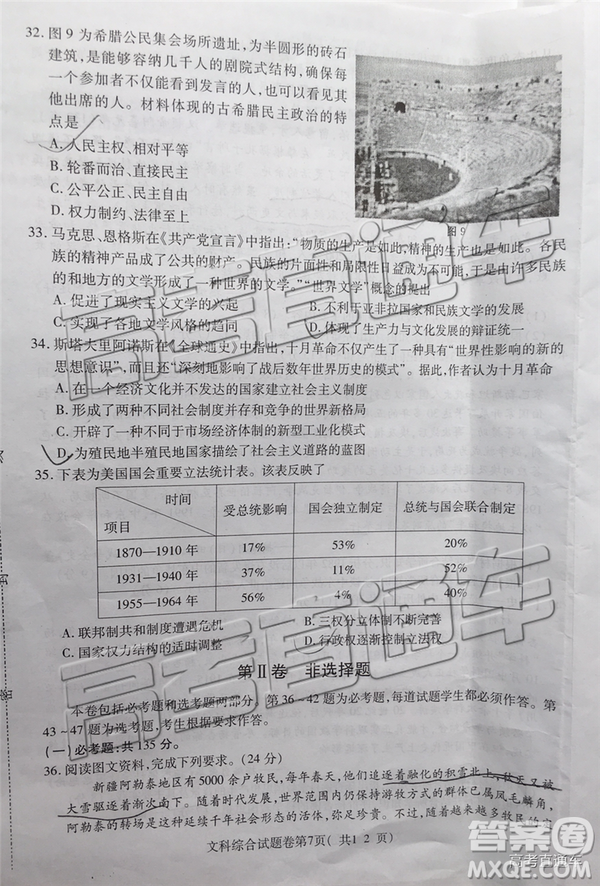 32. 图9为希腊公民集会场所遗址,为半圆形的砖石
建筑,是能够容纳几千人的剧院式结构,确保每一
个参加者不仅能看到发言的人,也能看到其
他出席的人。材料体现的古希腊民主政治的特
点是
A. 人民主权、相对平等
B. 轮番而治、直接民主
C. 公平公正、民主自由
D. 权力制约、法律至上
图9
33. 马克思、恩格斯在《共产党宣言》中指出:“物质的生产是如此,精神的生产也是如此。各民
族的精神产品成了公共的财产。民族的片面性和局限性日益成为不可能,于是由许多民族
的和地方的文学形成了一种世界的文学。”“世界文学”概念的提出
A. 促进了世界文学的兴起
B. 不利于亚非拉国家和民族文学的发展
C. 实现了各地文学风格的统一
D. 体现了生产力与文化发展的辩证统一
34. 斯塔夫里阿诺斯在《全球通史》中指出,十月革命不仅产生了一种具有“世界性影响的新的
思想意识”,而且还“深刻地影响了战后数年世界历史的模式”。据此,作者认为十月革命
A. 在一个经济文化并不发达的国家建立社会主义制度
B. 形成了两种不同社会制度并存和竞争的世界新格局
C. 开辟了一种不同于市场经济体制的新型工业化模式
D. 为殖民地半殖民地国家描绘了社会主义道路的蓝图
35. 下表为美国国会重要立法统计表。该表反映了
时间 项目 受总统影响 国会独立制定 总统与国会联合制定
1870—1910年 17% 53% 20%
1931—1940年 37% 11% 52%
1955—1964年 56% 4% 40%
A. 联邦制共和制度遭遇危机
B. 三权分立体制不断完善
C. 国家权力结构的适时调整
D. 行政权逐渐凌驾立法权
第Ⅱ卷 非选择题
本卷包括必考题和选考题两部分。第36～42题为必考题,每道试题学生都必须作答。第
43～47题为选考题,考生根据要求作答。
(一)必考题:共135分。
36. 阅读图文资料,完成下列要求。(24分)
新疆阿勒泰地区有5000余户牧民,每年春天,他们追逐着融化的积雪北上,秋天又被
大雪驱逐着渐次南下。随着时代发展,世界范围内至今保持游牧方式的群体已属凤毛麟角,
阿勒泰正是这种延续千年社会文化的典型代表。随着草场的严重退化,越来越多牧民
文科综合试题卷第7页(共12页)
高考直通车
答案圈